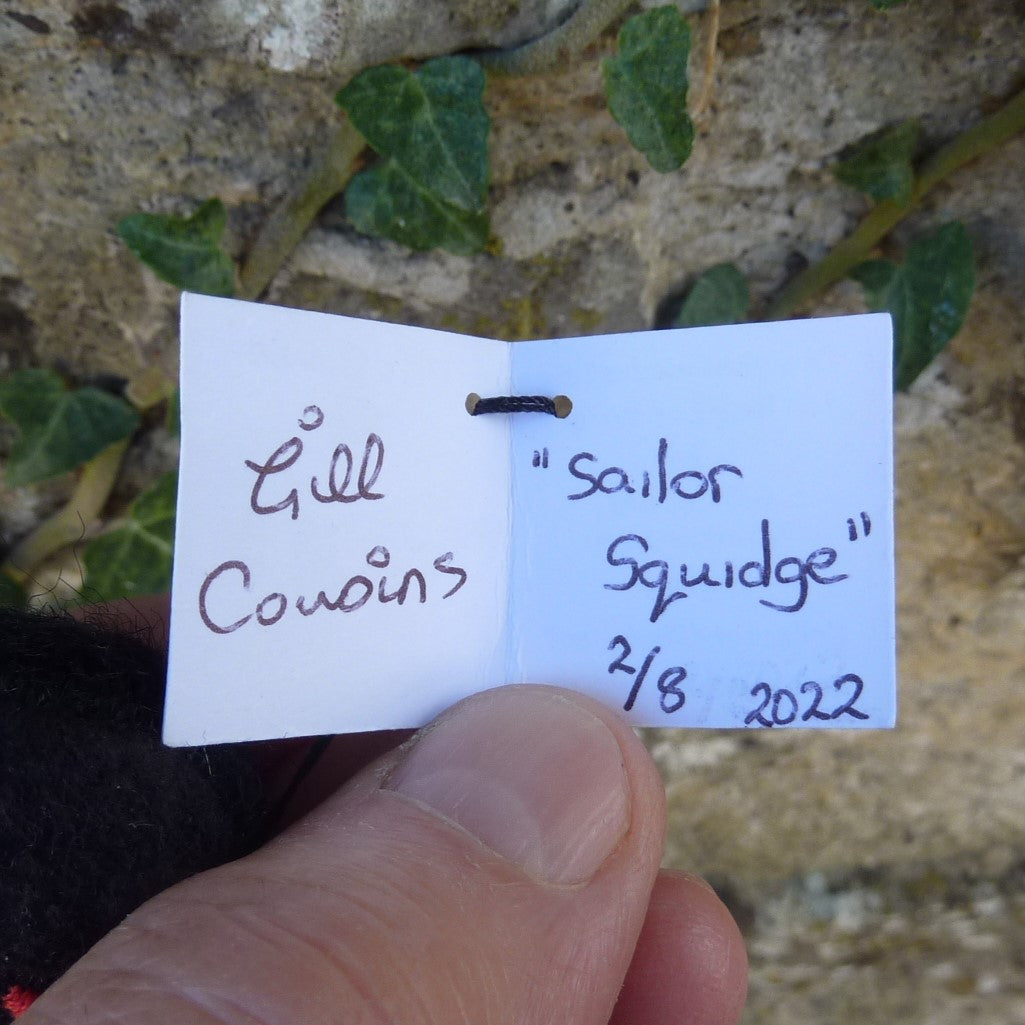 Gill
Cousins
"Sailor
Squidge"
2/8 2022